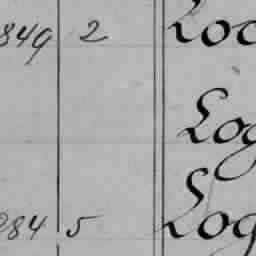 849 2 Loc
Log
284 5 Log